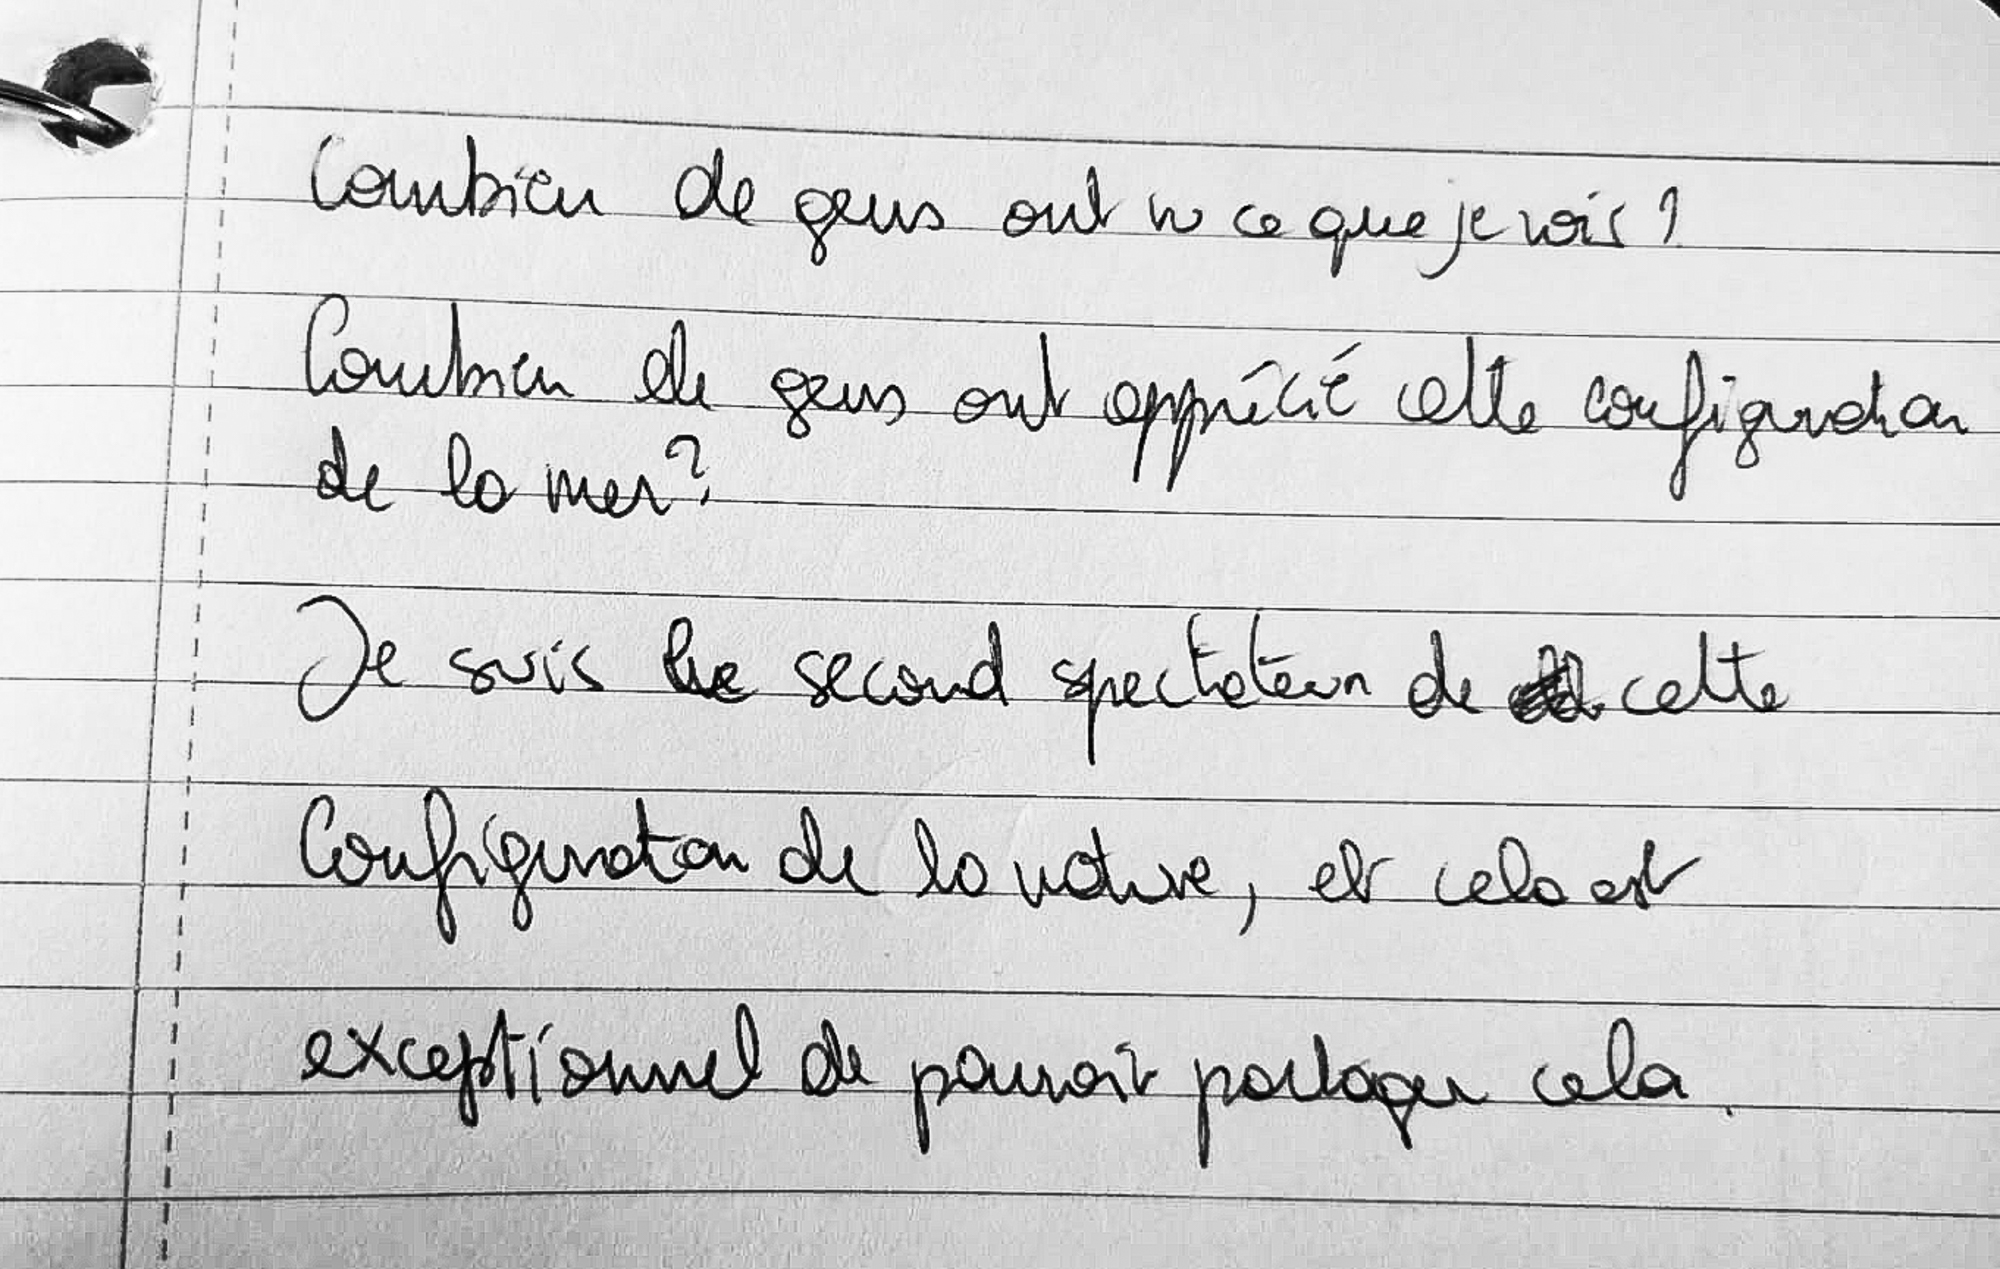 Combien de gens ont vu ce que je vois ?
Combien de gens ont apprécié cette configuration
de la mer ?
Je suis le second spectateur de cette
Configuration de la nature, et cela est
exceptionnel de pouvoir partager cela.